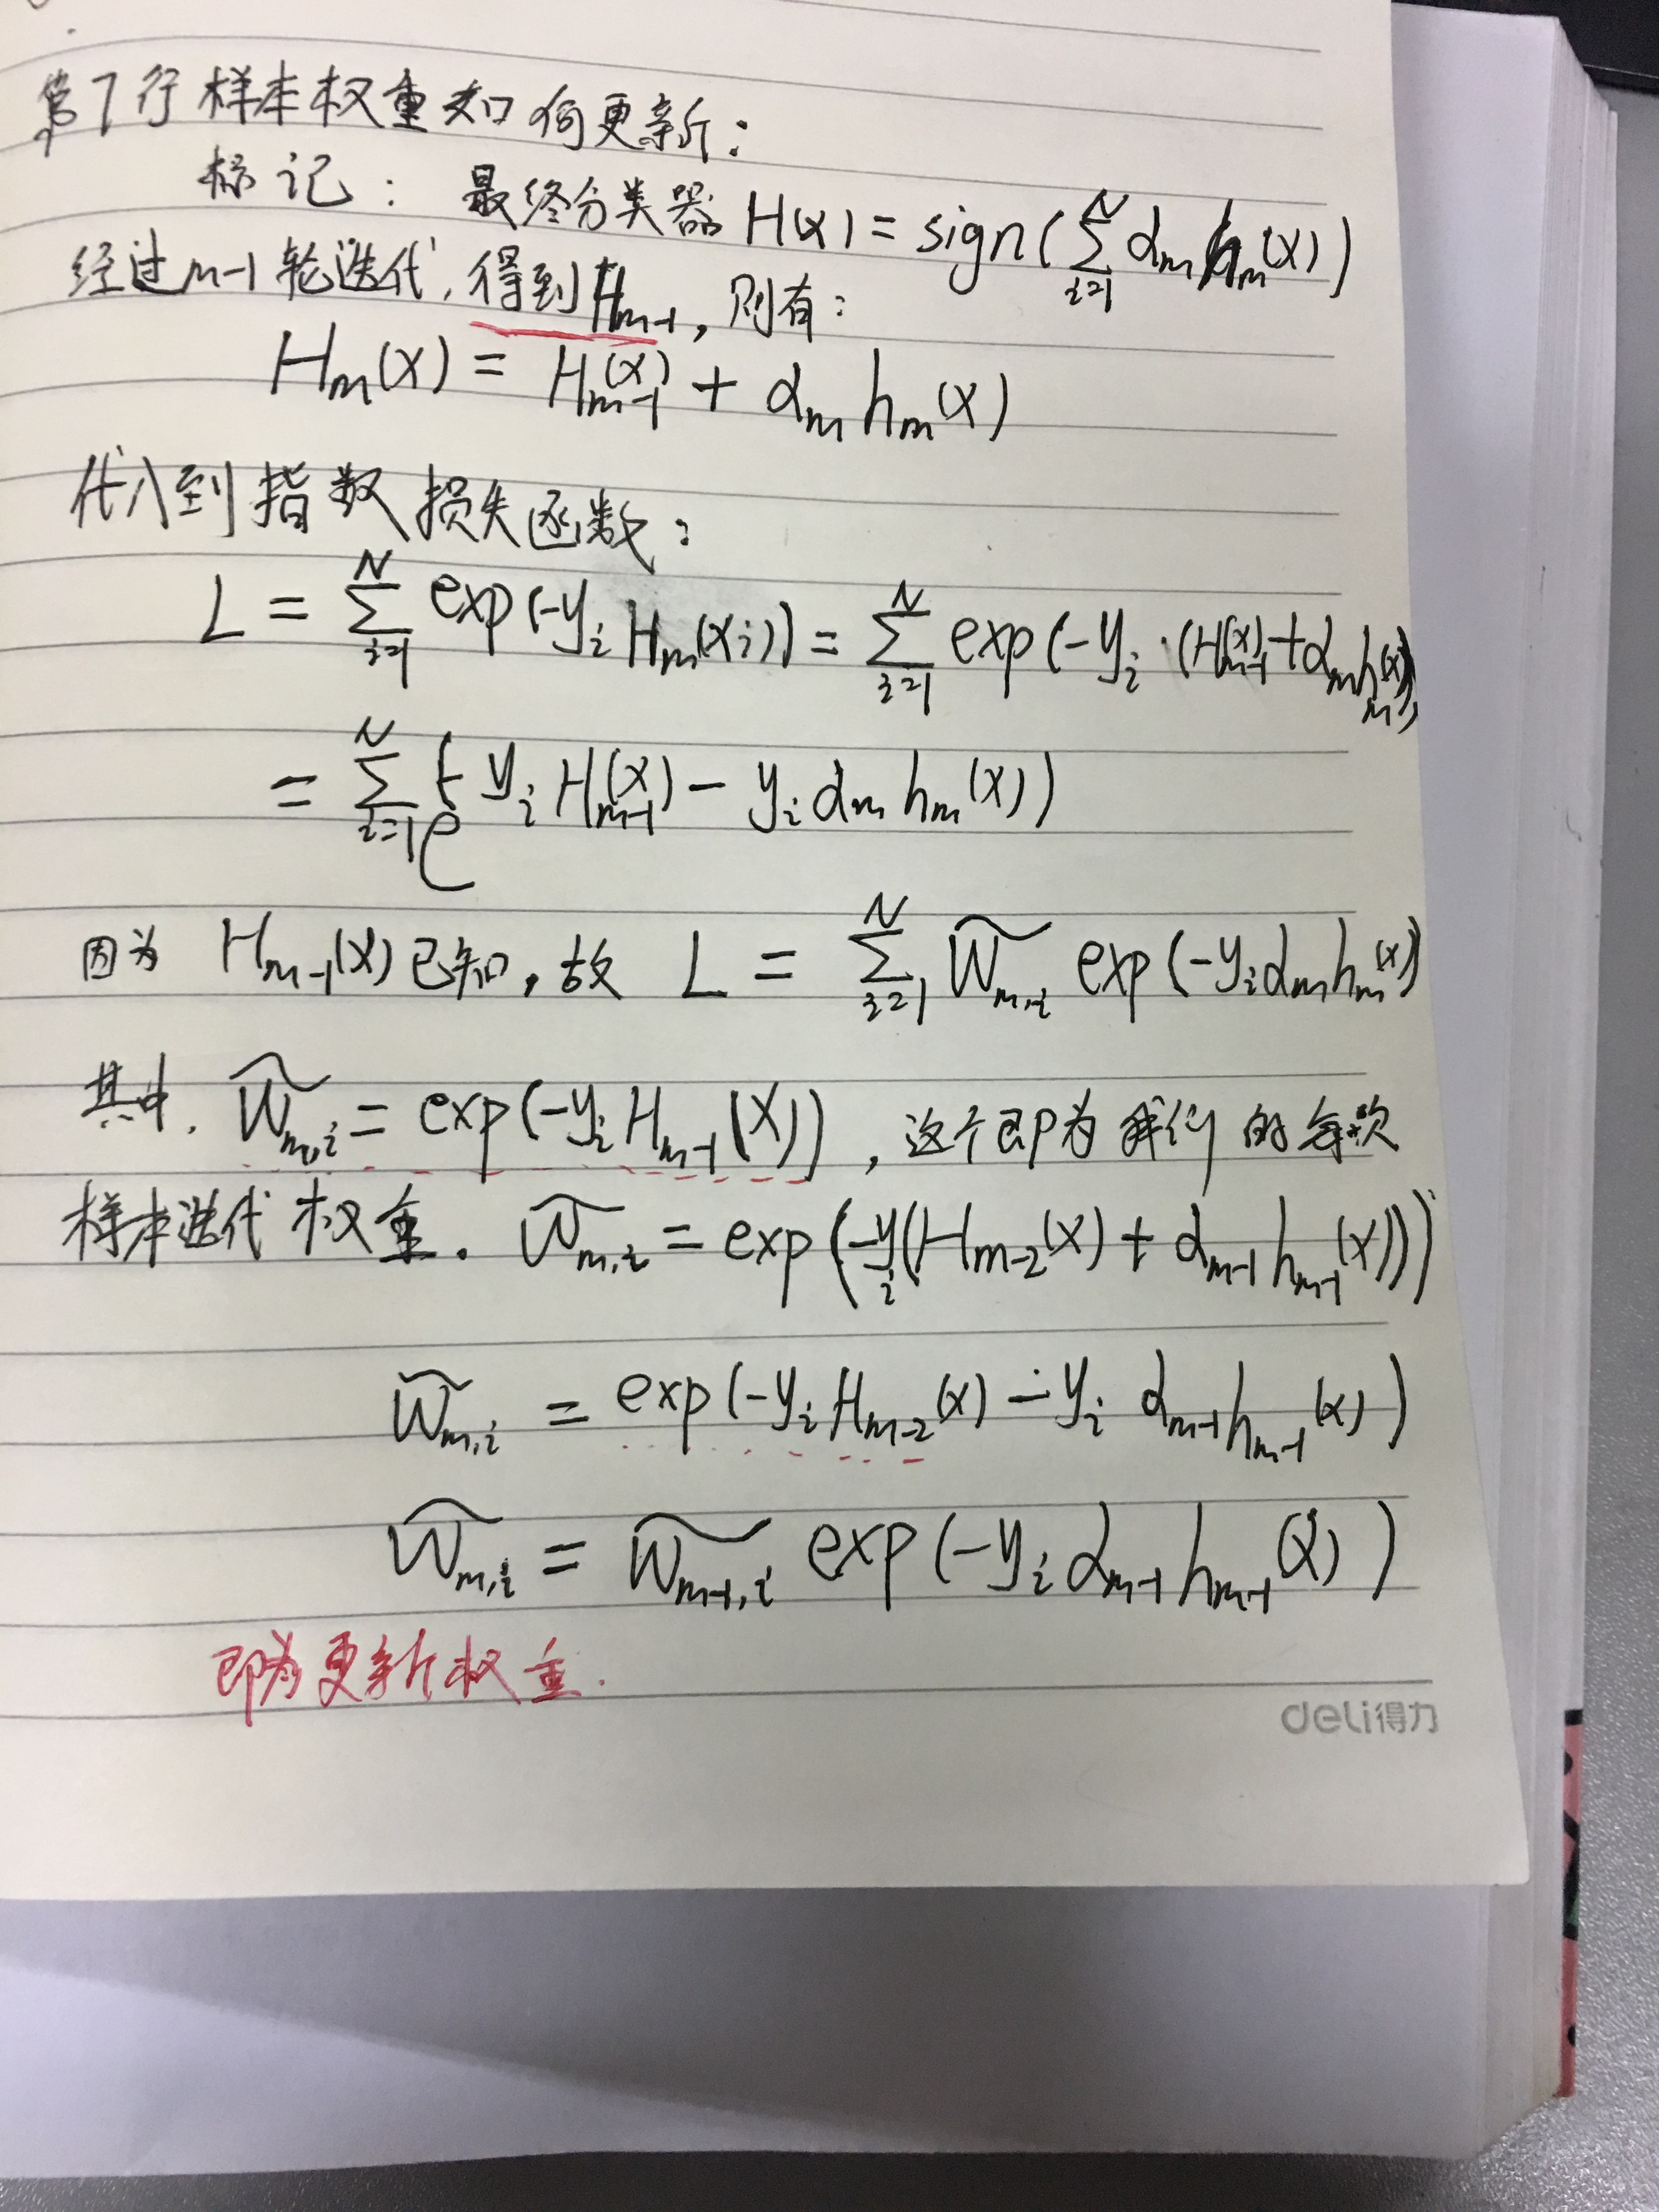 第7行样本权重如何更新:
标记: 最终分类器 H(x) = sign(∑_{i=1}^{N} α_m h_m(x))
经过m-1轮迭代,得到H_{m-1},则有:
H_m(x) = H_{m-1}(x) + α_m h_m(x)
代入到指数损失函数:
L = ∑_{i=1}^{N} exp(-y_i H_m(x_i)) = ∑_{i=1}^{N} exp(-y_i·(H_{m-1}(x)+α_m h_m(x)))
= ∑_{i=1}^{N} e(-y_i H_{m-1}(x) - y_i α_m h_m(x))
因为 H_{m-1}(x)已知,故 L = ∑_{i=1}^{N} w̃_{m,i} exp(-y_i α_m h_m(x))
其中, w̃_{m,i} = exp(-y_i H_{m-1}(x)),这个即为我们的每次
样本迭代权重. w̃_{m,i} = exp(-y_i(H_{m-2}(x) + α_{m-1} h_{m-1}(x)))
w̃_{m,i} = exp(-y_i H_{m-2}(x) - y_i α_{m-1} h_{m-1}(x))
w̃_{m,i} = w̃_{m-1,i} exp(-y_i α_{m-1} h_{m-1}(x))
即为更新权重.
deli得力